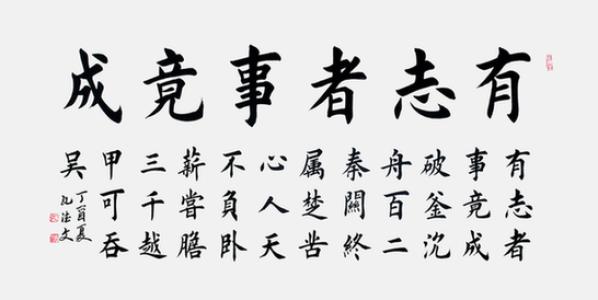 有志者事竟成
有志者
事竟成
破釜沉
舟百二
秦關終
属楚苦
心人天
不負卧
薪嘗膽
三千越
甲可吞
吴
丁酉夏